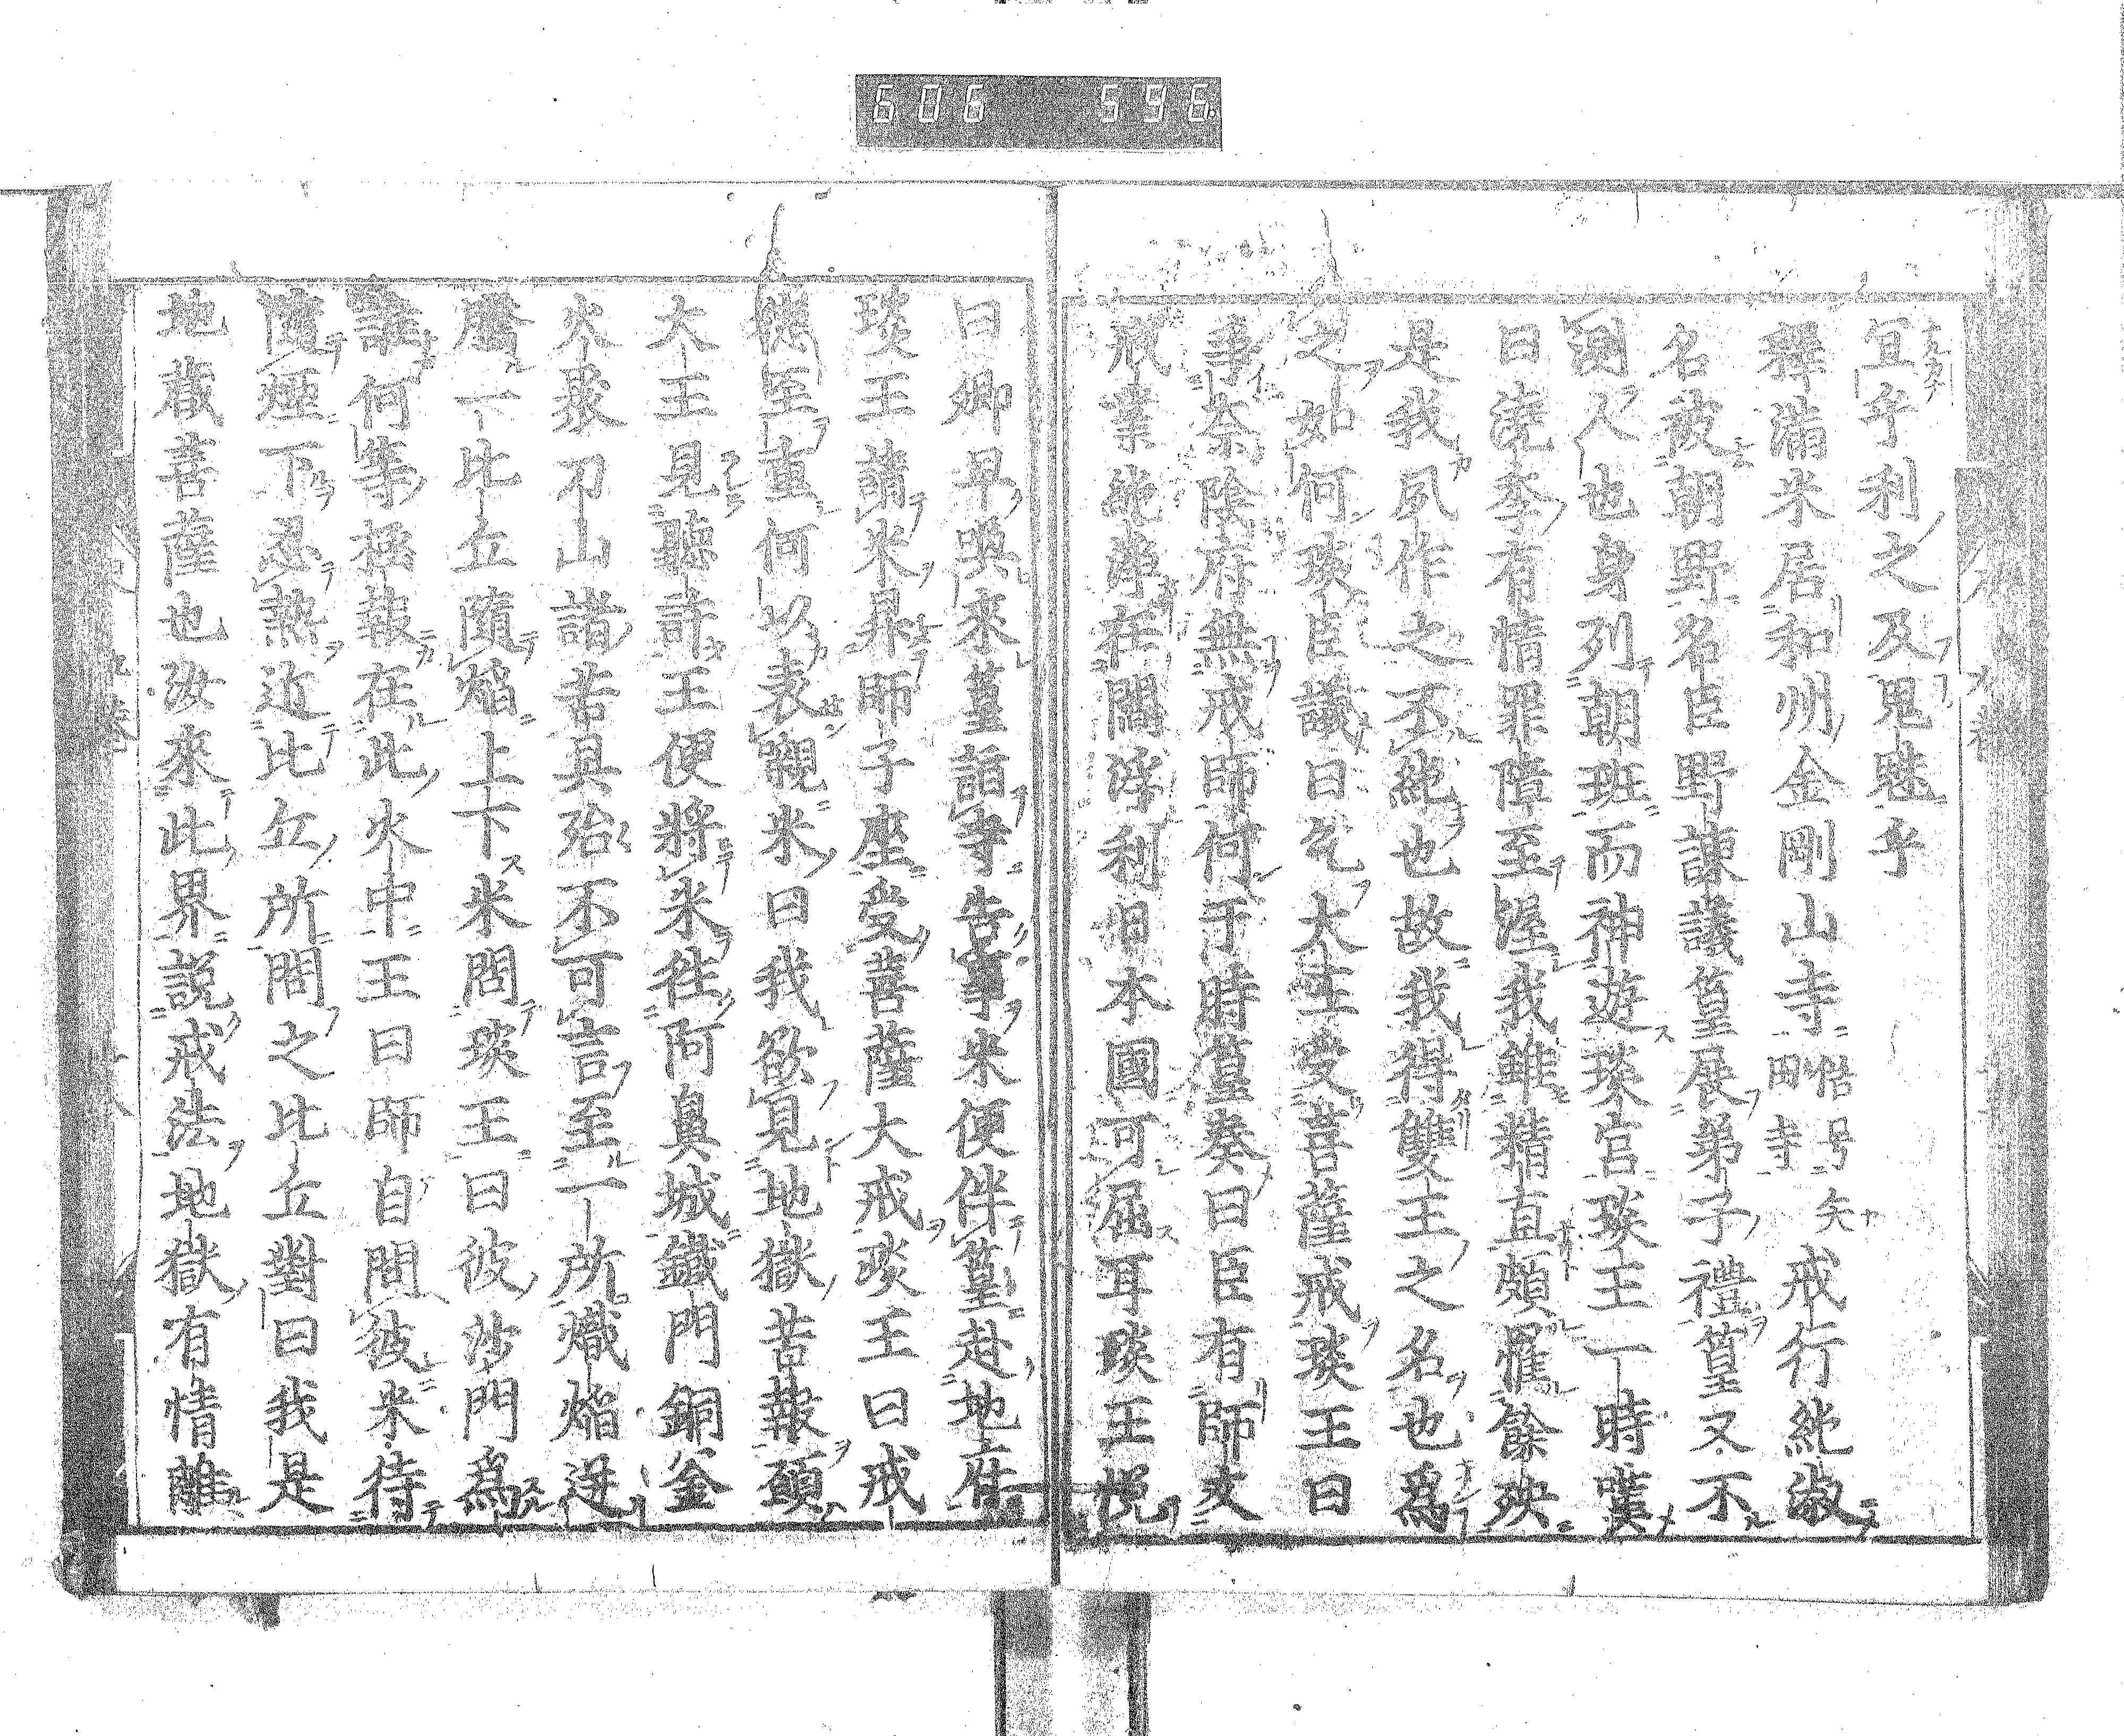 606 596
宜乎利之及鬼魅乎
釋滿米居和州金剛山寺俗号矢田寺戒行純淑
名被朝野名臣野諫議篁展弟子禮篁又不
測人也身列朝班而神遊琰宮琰王一時嘆
曰澆季有情罪障至渥我雖精直頗罹餘殃
是我夙作之不純也故我得雙王之名也爲
之如何琰臣議曰乞大王受菩薩戒琰王曰
奈陰府無戒師何于時篁奏曰臣有師友
戒業純淨在閻浮利日本國可屈耳琰王悦
曰卿早喚來篁詣寺告事米便伴篁赴地府
琰王請米昇師子座受菩薩大戒琰王曰戒
德至重何以表嚫米曰我欲見地獄苦報願
大王見聽許王便將米往阿鼻城鐵門銅釜
火聚刀山諸苦具殆不可言至一所熾焔迸
騰一比丘隨焔上下米問琰王曰彼沙門爲
誰何等極報在此火中王曰師自問彼米待
隨煙下忍熱近比丘所問之比丘對曰我是
地藏菩薩也汝來此界説戒法地獄有情離